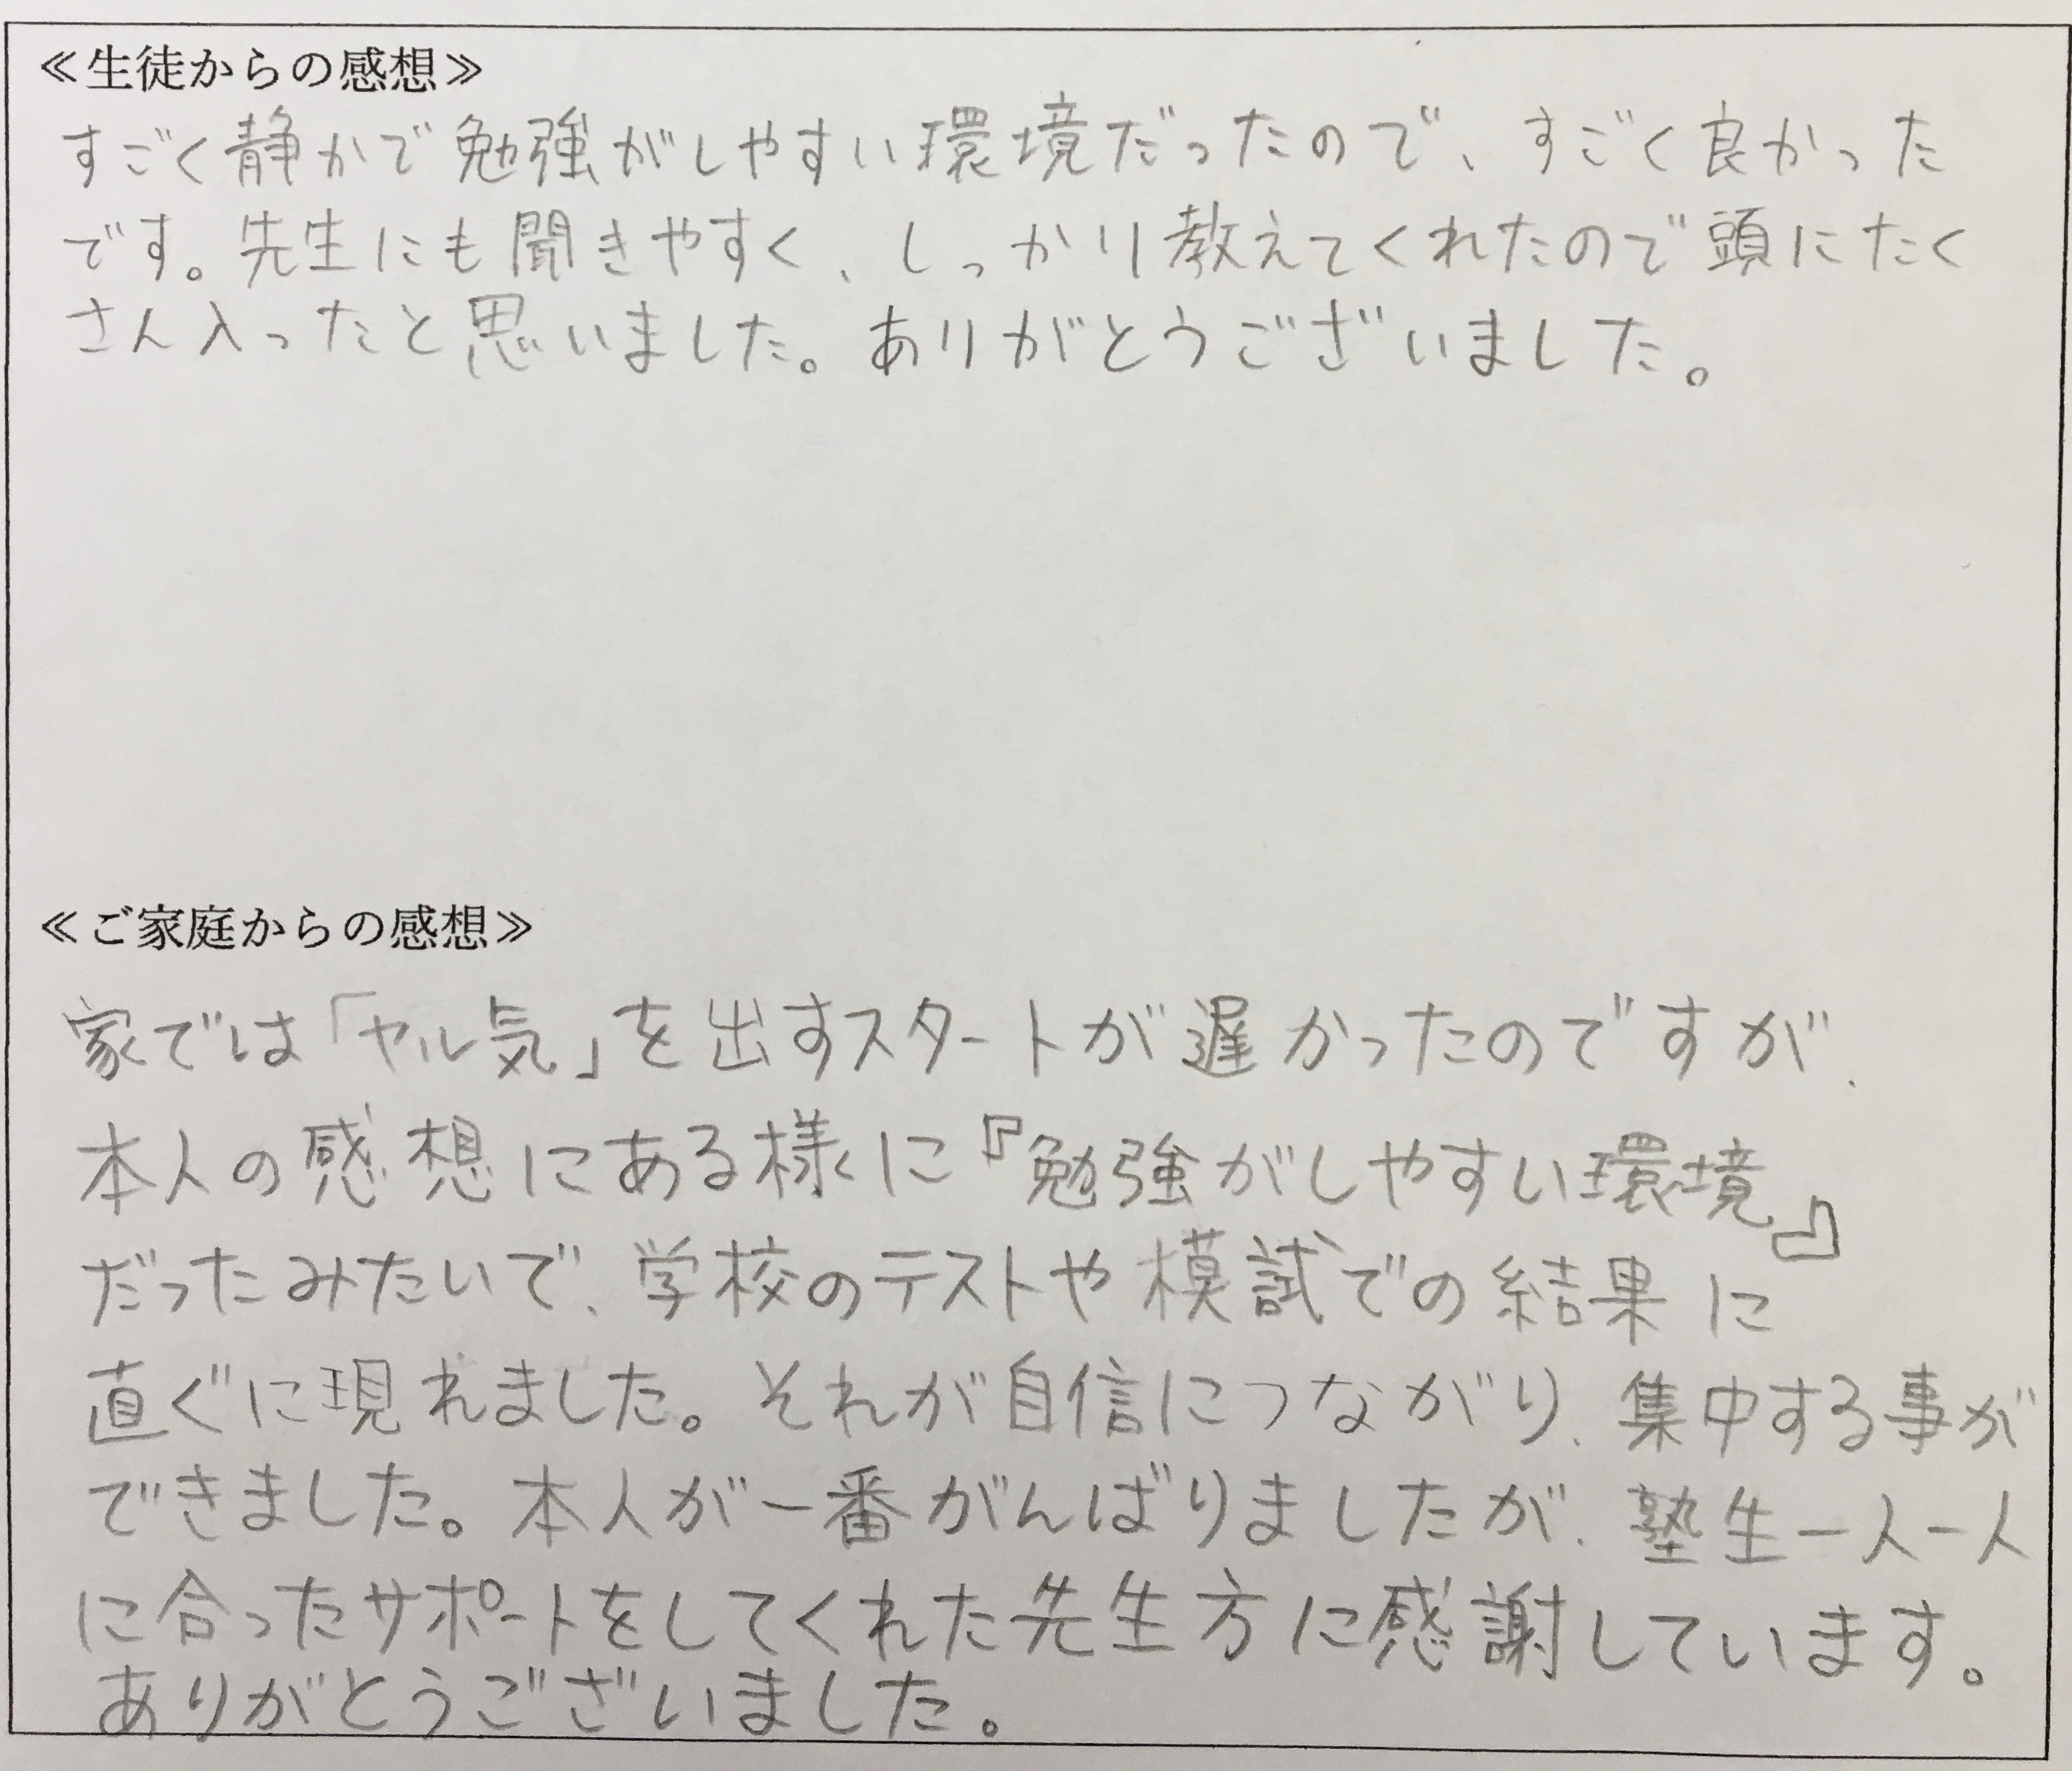 ≪生徒からの感想≫
すごく静かで勉強がしやすい環境だったので、すごく良かった
です。先生にも聞きやすく、しっかり教えてくれたので頭にたく
さん入ったと思いました。ありがとうございました。
≪ご家庭からの感想≫
家では「ヤル気」を出すスタートが遅かったのですが、
本人の感想にある様に『勉強がしやすい環境』
だったみたいで、学校のテストや模試での結果に
直ぐに現れました。それが自信につながり、集中する事が
できました。本人が一番がんばりましたが、塾生一人一人
に合ったサポートをしてくれた先生方に感謝しています。
ありがとうございました。